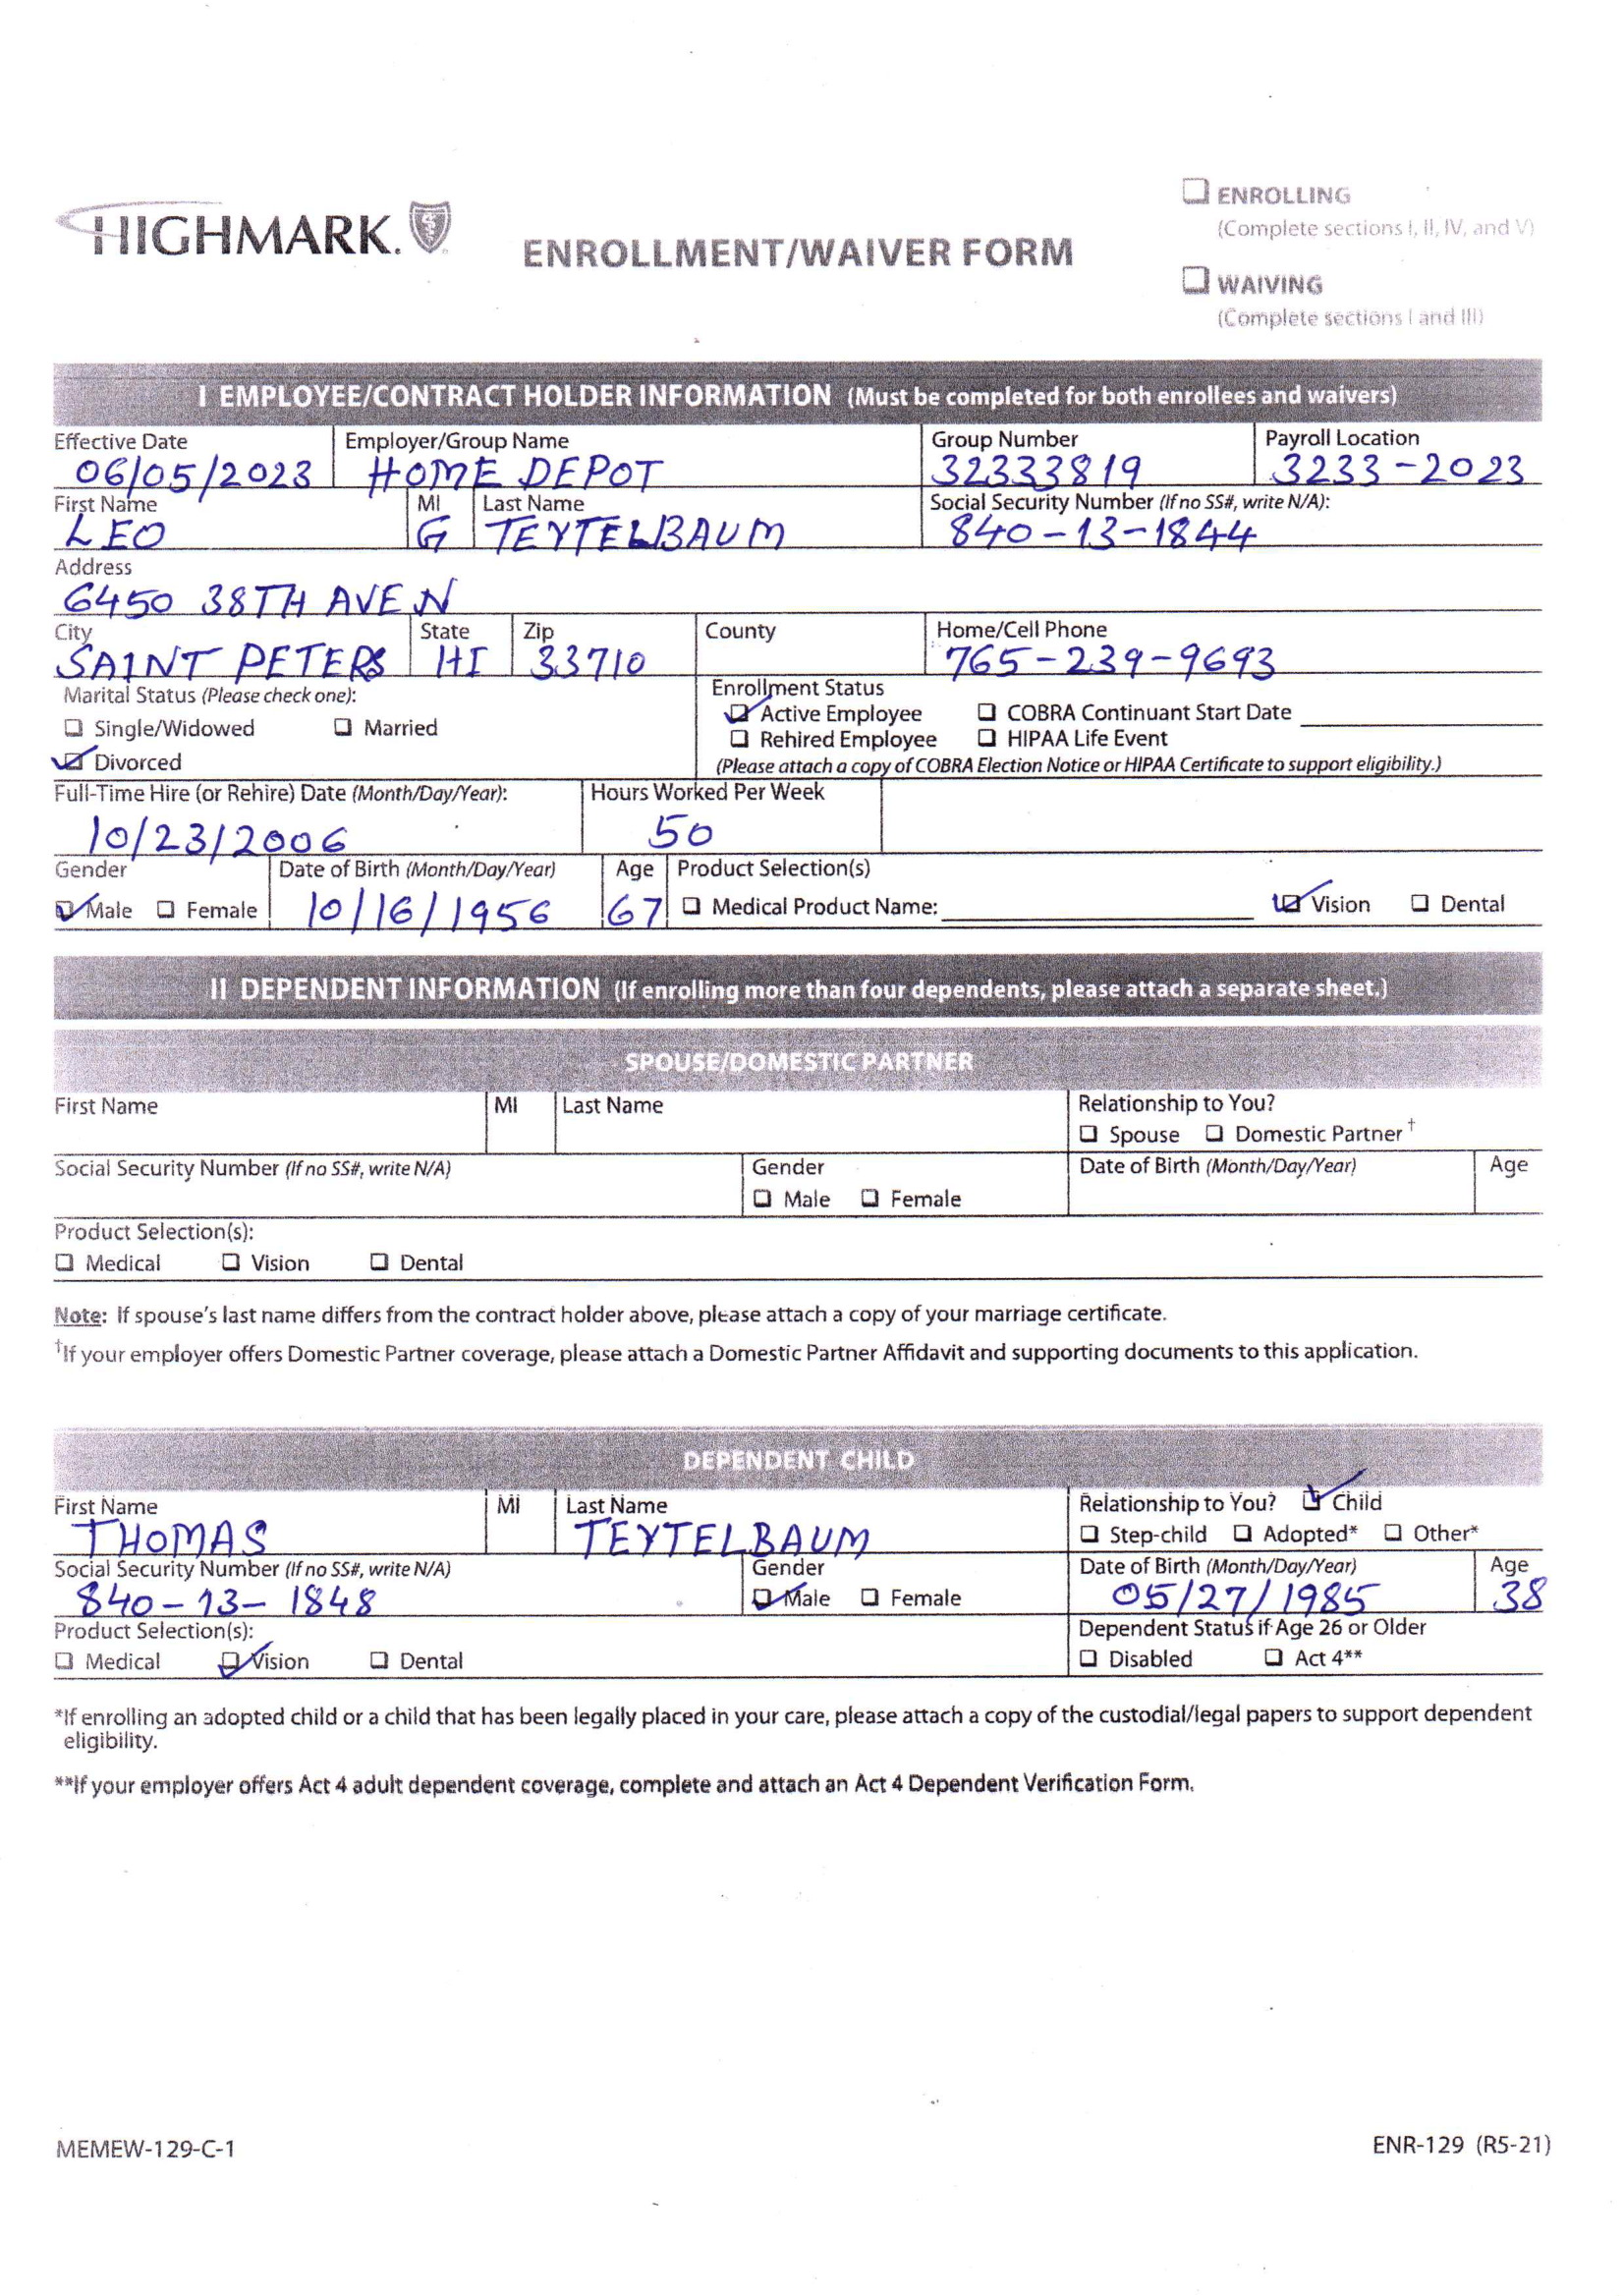 HIGHMARK.
ENROLLMENT/WAIVER FORM
ENROLLING
(Complete sections I, II, IV, and V)
WAIVING
(Complete sections I and III)
I EMPLOYEE/CONTRACT HOLDER INFORMATION (Must be completed for both enrollees and waivers)
Effective Date Employer/Group Name Group Number Payroll Location
06/05/2023 HOME DEPOT 32333819 3233-2023
First Name MI Last Name Social Security Number (If no SS#, write N/A):
LEO G TEYTELBAUM 840-13-1844
Address
6450 38TH AVE N
City State Zip County Home/Cell Phone
SAINT PETERS HI 33710 765-239-9693
Marital Status (Please check one): Enrollment Status
Single/Widowed Married Active Employee COBRA Continuant Start Date
Rehired Employee HIPAA Life Event
Divorced (Please attach a copy of COBRA Election Notice or HIPAA Certificate to support eligibility.)
Full-Time Hire (or Rehire) Date (Month/Day/Year): Hours Worked Per Week
10/23/2006 50
Gender Date of Birth (Month/Day/Year) Age Product Selection(s)
Male Female 10/16/1956 67 Medical Product Name: Vision Dental
II DEPENDENT INFORMATION (If enrolling more than four dependents, please attach a separate sheet.)
SPOUSE/DOMESTIC PARTNER
First Name MI Last Name Relationship to You?
Spouse Domestic Partner†
Social Security Number (If no SS#, write N/A) Gender Date of Birth (Month/Day/Year) Age
Male Female
Product Selection(s):
Medical Vision Dental
Note: If spouse's last name differs from the contract holder above, please attach a copy of your marriage certificate.
†If your employer offers Domestic Partner coverage, please attach a Domestic Partner Affidavit and supporting documents to this application.
DEPENDENT CHILD
First Name MI Last Name Relationship to You? Child
THOMAS TEYTELBAUM Step-child Adopted* Other*
Social Security Number (If no SS#, write N/A) Gender Date of Birth (Month/Day/Year) Age
840-13-1848 Male Female 05/27/1985 38
Product Selection(s): Dependent Status if Age 26 or Older
Medical Vision Dental Disabled Act 4**
*If enrolling an adopted child or a child that has been legally placed in your care, please attach a copy of the custodial/legal papers to support dependent
eligibility.
**If your employer offers Act 4 adult dependent coverage, complete and attach an Act 4 Dependent Verification Form.
MEMEW-129-C-1 ENR-129 (R5-21)